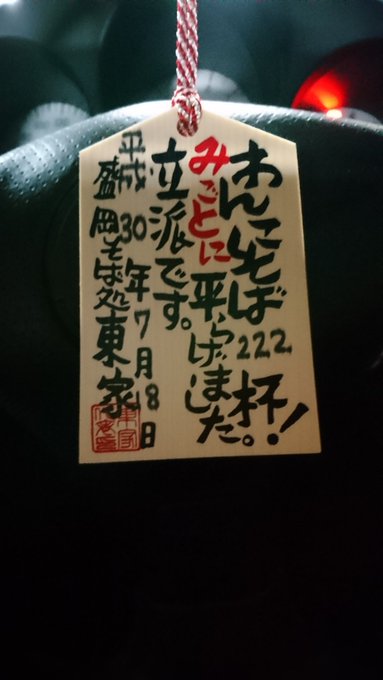 わんこそば222杯!
みごとに平らげました。
立派です。
平成30年7月18日
盛岡そば処東家